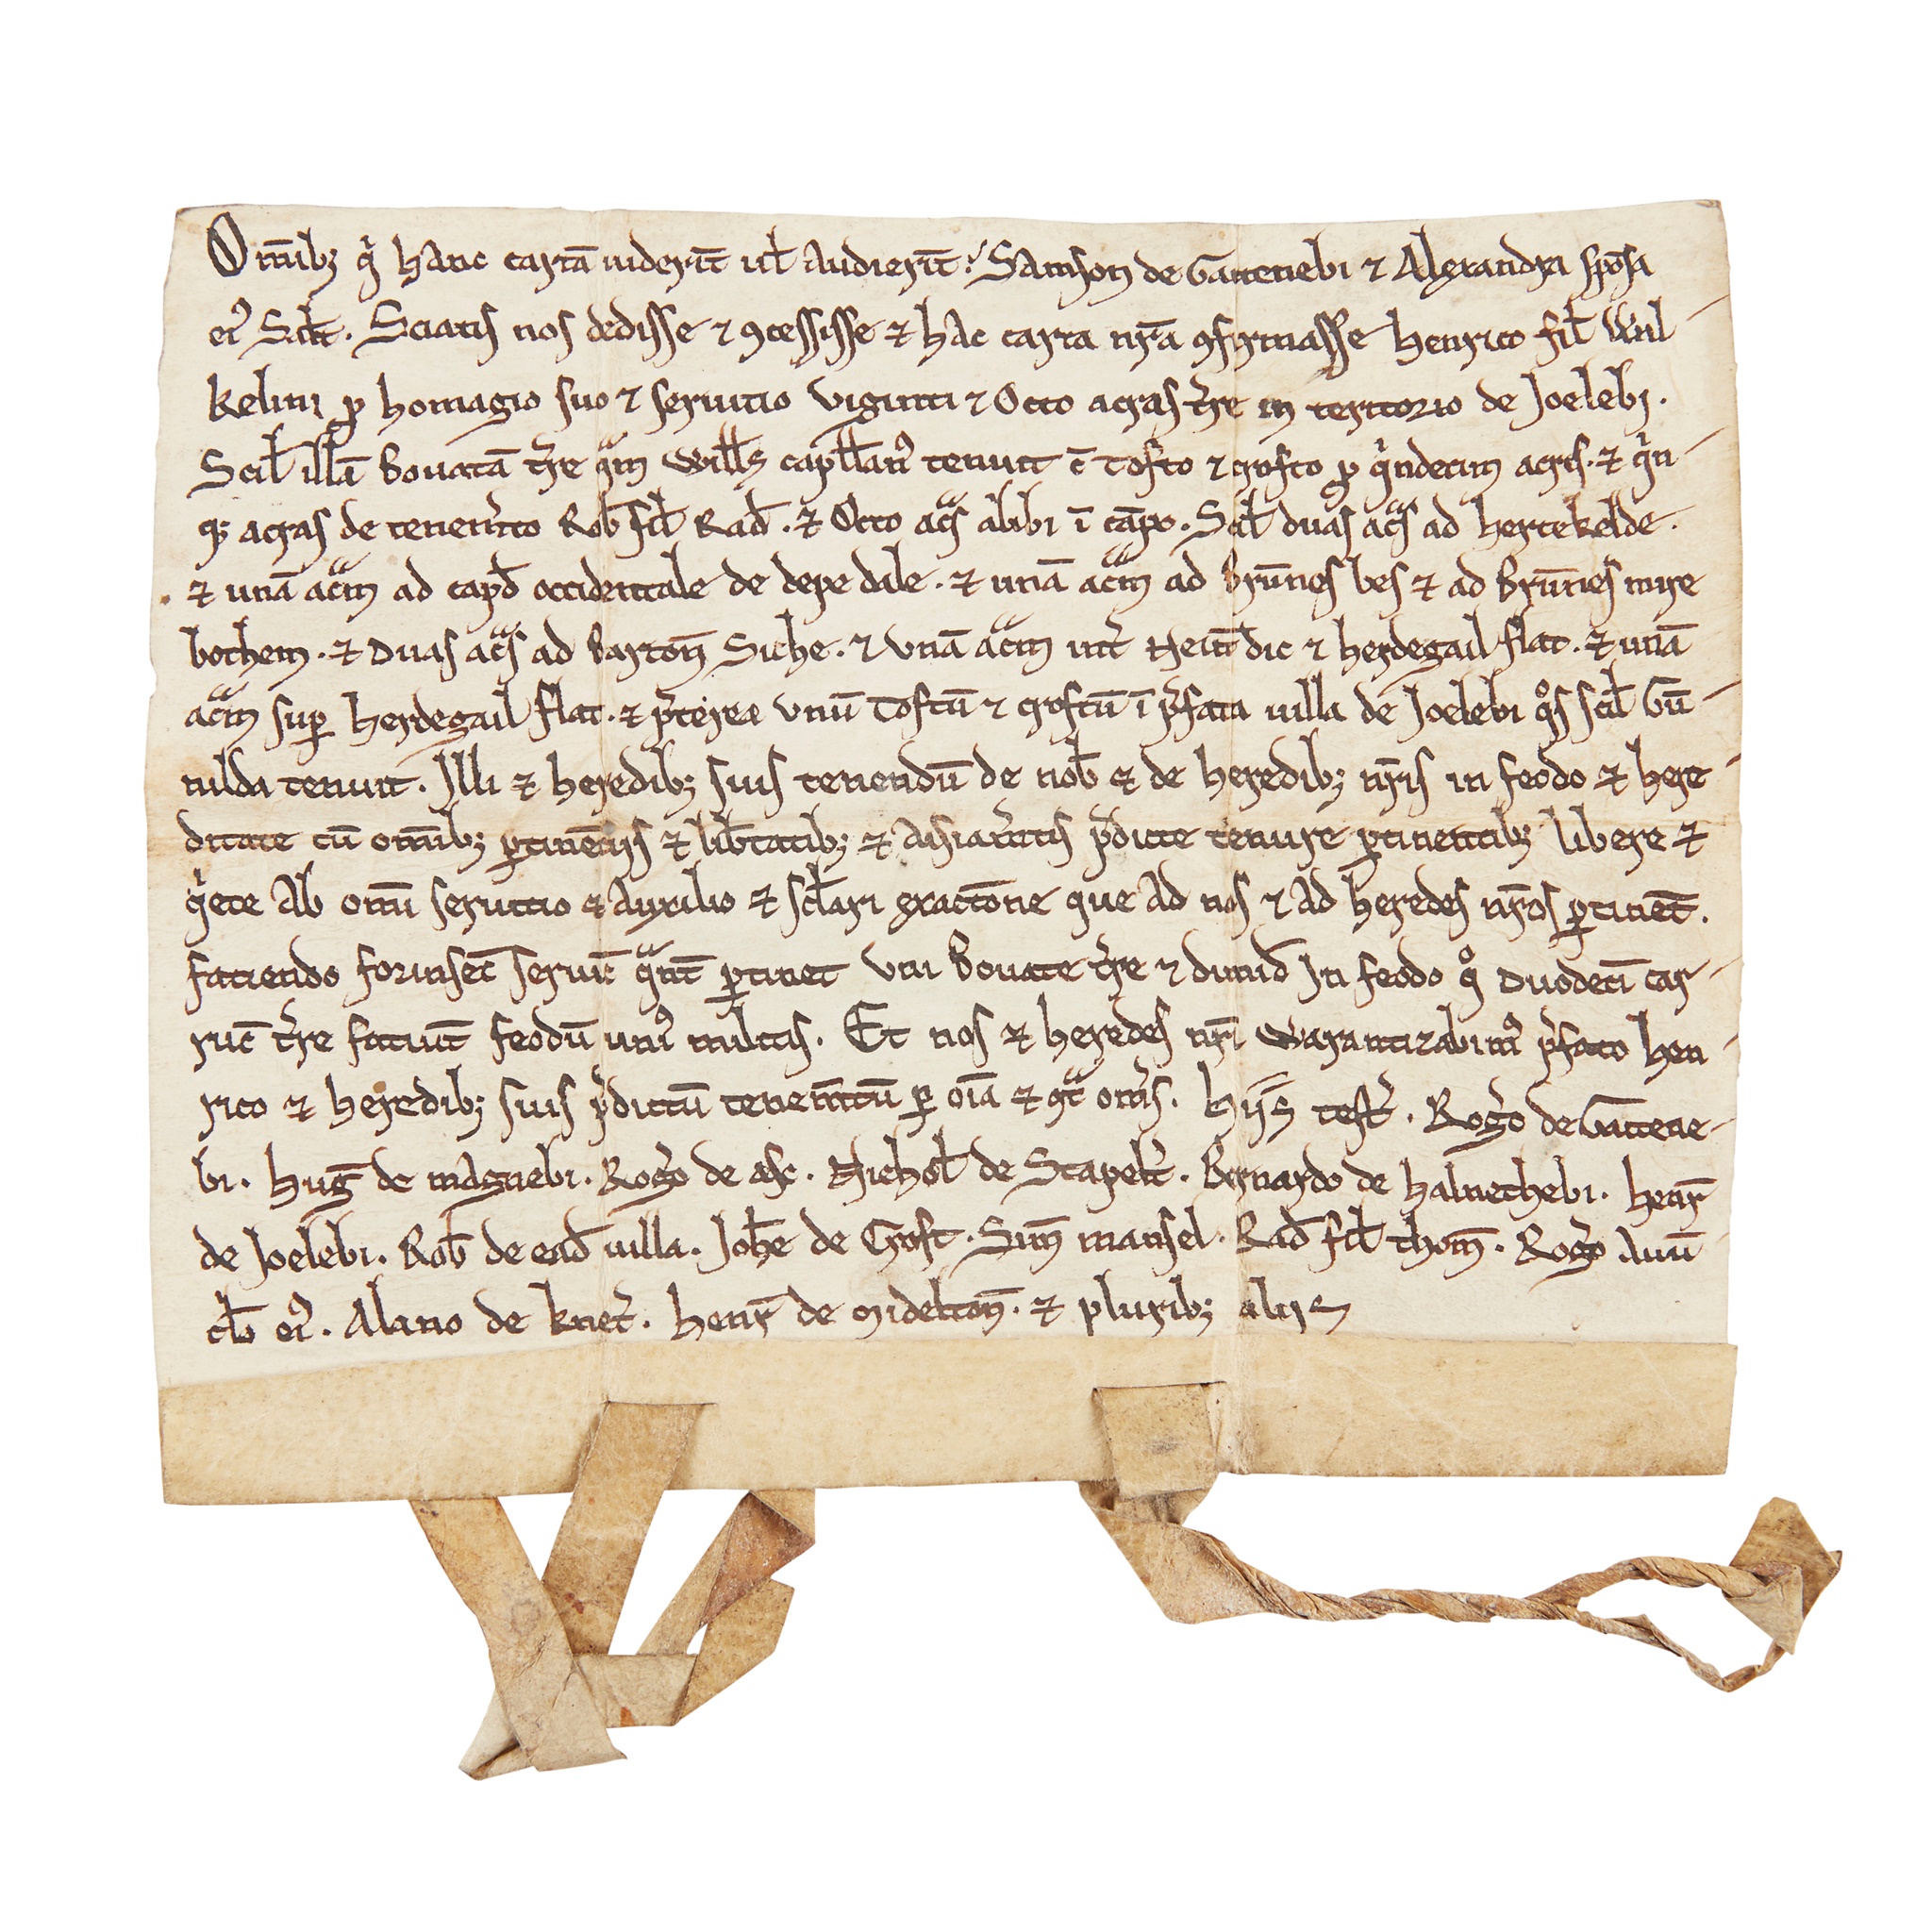 Om̄ibꝫ qͥ hanc cartā uiderīt uł audierīt. Samson de Gattenebi ⁊ Alexandra spōsa
eiꝰ Sałt. Sciatis nos dedisse ⁊ ꝯcessisse ⁊ hac carta nr̄a ꝯfirmasse henrico fił Wil
kelini ꝓ homagio suo ⁊ seruitio viginti ⁊ Octo acras t̄re in territorio de Joelebi.
Scił illā bouatā t̄re qᵃm Witts capłłanꝰ tenuit ī tofto ⁊ crofto ꝓ qͥndecim acris. ⁊ qͥn
qꝫ acras de tenem̄to Rob̄ fił Rad̄. ⁊ Octo acᵃs alibi ī cāpo. Scił duas acᵃs ad hertekelde.
⁊ unā acᵃm ad capđ occidentale de depe dale. ⁊ unā acᵃm ad brūnes bes ⁊ ad brūnes mire
bothem. ⁊ duas acᵃs ad barton̄ Siche. ⁊ vnā acᵃm int̄ Neut̄ dic ⁊ herdegail flat. ⁊ unā
acᵃm suꝑ herdegail flat. ⁊ pͥterea vnū toftū ⁊ croftū ī pͥfata uilla de Joelebi qͦs scił Gū
nilda tenuit. Illi ⁊ heredibꝫ suis tenendū de nob̄ ⁊ de heredibꝫ nr̄is in feodo ⁊ here
ditate cū om̄ibꝫ ꝑtinēciis ⁊ lib̄tatibꝫ ⁊ aisiam̄tis pͥdicte tenure ꝑtinentibꝫ libere ⁊
qͥete ab om̄i seruitio ⁊ auxilio ⁊ scłari exactōne que ad nos ⁊ ad heredes nr̄os ꝑtinēt.
faciendo forinsec̄ seruic̄ qᵃnt̄ ꝑtinet vni bouate t̄re ⁊ dimid̄ In feodo qͦ duodeci̅ car
ruc̄ t̄re faciūt feodū uniꝰ militis. Et nos ⁊ heredes nr̄i warantizabimꝰ pͥfato hen
rico ⁊ heredibꝫ suis pͥdictū tenem̄tū ꝑ oīa ⁊ ꝯtᵃ om̄s. hiis test̄. Roḡo de Gattene
bi. huḡ de magnebi. Roḡo de asc. Nichoł de Stapelt̄. Bernardo de halnethebi. henr̄
de Joelebi. Rob̄ de ead̄ uilla. Joh̄e de Croft. Sim̄ mansel. Rad̄ fił thom̄. Roḡo auū
cło eiꝰ. Alano de knet̄. henr̄ de midelton̄. ⁊ pluribꝫ aliis